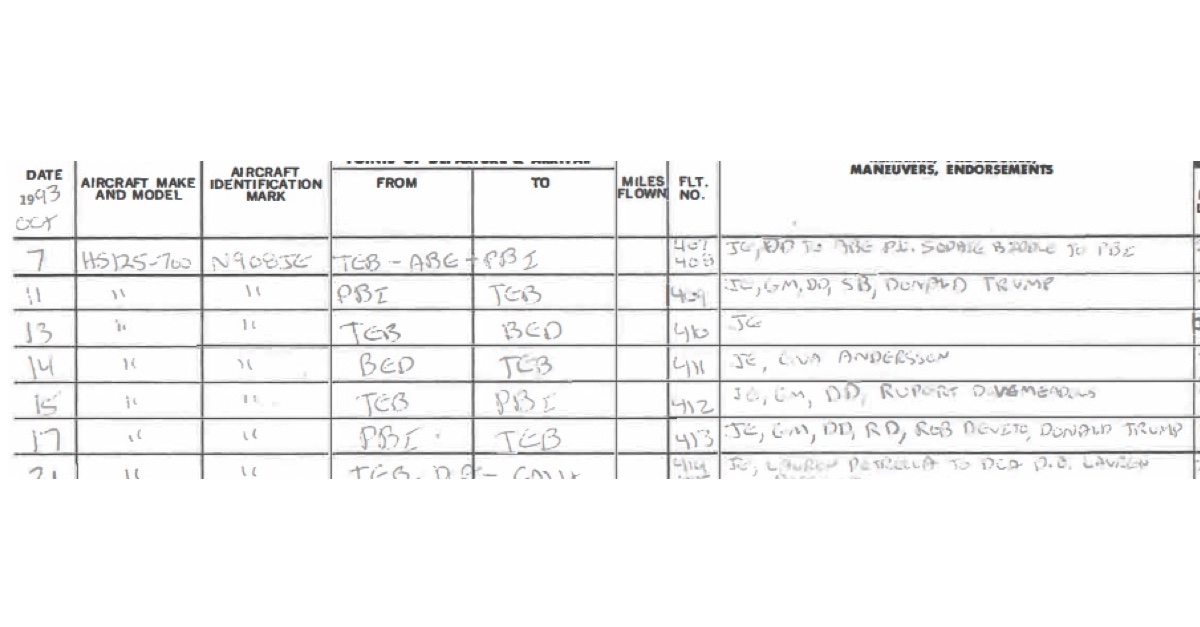 DATE
1993
OCT
AIRCRAFT MAKE
AND MODEL
AIRCRAFT
IDENTIFICATION
MARK
POINTS OF DEPARTURE & ARRIVAL
FROM TO
MILES
FLOWN
FLT.
NO.
MANEUVERS, ENDORSEMENTS
7 HS125-700 N908JE TEB - ABE - PBI 407 408 JE, DD TO ABE P.U. SOPHIE BIDDLE TO PBI
11 " " PBI TEB 409 JE, GM, DD, SB, DONALD TRUMP
13 " " TEB BED 410 JE
14 " " BED TEB 411 JE, EVA ANDERSSON
15 " " TEB PBI 412 JE, GM, DD, RUPORT
17 " " PBI TEB 413 JE, GM, DD, RD, ROB DEVITO, DONALD TRUMP
21 " " TEB 414 JE, LAUREN PETRELLA TO DCA D.O. LAUREN